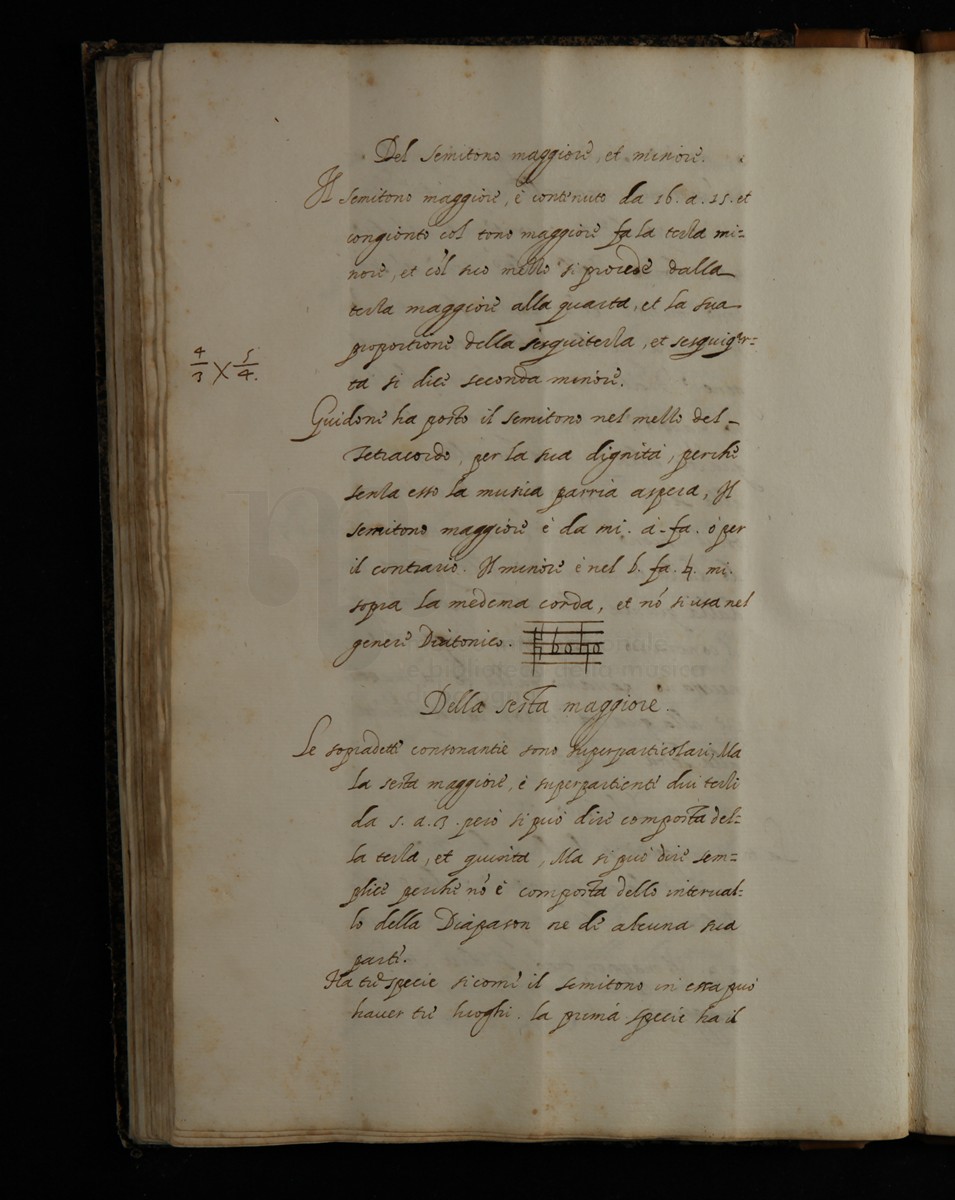 Del semitono maggiore, et minore.
Il semitono maggiore, è contenuto da 16. a. 15. et
congionto col tono maggiore fa la terza mi=
nore, et col suo mezzo si procede dalla
terza maggiore alla quarta, et la sua
proportione della sesquiterza, et sesquiqar=
ta si dice seconda minore.
4/3 X 5/4.
Guidone ha posto il semitono nel mezzo del
Tetracordo, per la sua dignità, perche
senza esso la musica parria aspera, Il
semitono maggiore è da mi. à. fa. ò per
il contrario. Il minore è nel b. fa. ♮. mi.
sopra la medema corda, et nó si usa nel
genere Diatonico.
Della sesta maggiore.
Le sopradette consonantie sono superparticolari, Ma
la sesta maggiore, è superpartiente dui terzi
da 5. a. 3. però si può dire composta del=
la terza, et quarta, Ma si può dire sem=
plice perche nó è composta dello interual=
lo della Diapason ne de alcuna sua
parte.
Ha tre specie si come il semitono in essa può
hauer tre luoghi. la prima specie ha il